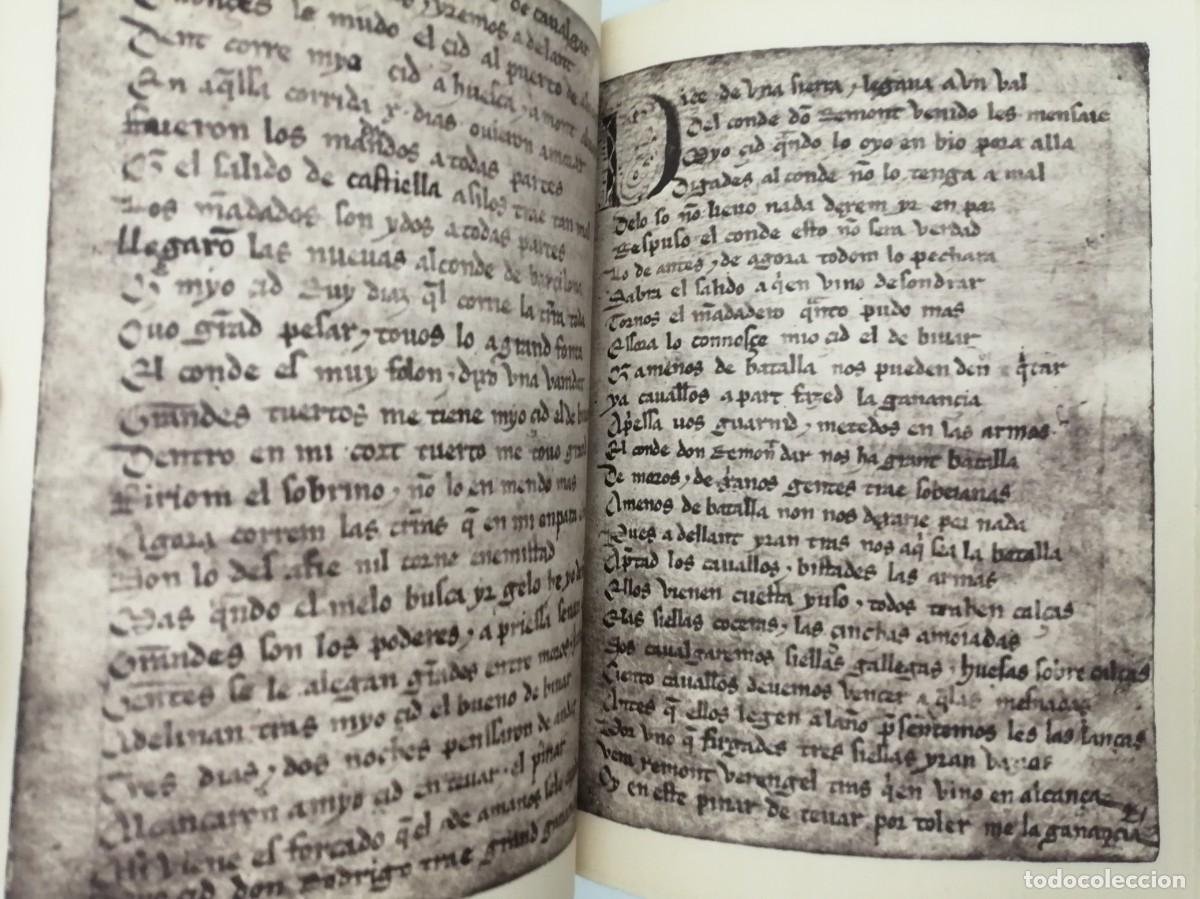 de caualgar
yremos adelant
le mudo el çid al puerto de
Dent corre myo çid a huesca, a mont
En aq̃lla corrida x dias ouieron a morar
Fueron los mandados a todas partes
Q̃ el salido de castiella asilos trae tan mal
Los mãdados son ydos a todas partes
llegarõ las nueuas al conde de barçilona
Q̃ myo çid Ruy diaz q̃l corrie la tr̃ra toda
Ouo gr̃ad pesar, touos lo a grand fonta
El conde es muy folon, dixo vna vanidat
Grandes tuertos me tiene myo çid el de biuar
Dentro en mi cort tuerto me touo grand
Firiom el sobrino, nõ lo en mendo mas
Agora correm las tr̃ras q̃ en mi enpara estan
Non lo desafie nil torne enemistad
Mas q̃ndo el melo busca yr gelo he yo de
Grandes son los poderes, a priessa seuan
Gentes se le alegan gr̃ades entre moros
Adelinan tras myo çid el bueno de biuar
Tres dias, dos noches penssaron de andar
Alcançaron a myo çid en teuar, el pinar
Asi viene el forçado q̃ el de a manos sele
Myo çid don Rodrigo trae grand
Dice de vna sierra, legaua a vn val
Del conde dõ Remont venido les mensaie
Myo çid q̃ndo lo oyo en bio pora alla
Digades al conde nõ lo tenga a mal
Delo so nõ lieuo nada dexem yr en paz
Respuso el conde esto nõ sera verdad
Lo de antes, de agora todom lo pechara
Sabra el salido a q̃en vino desondrar
Tornos el mãdadero q̃nto pudo mas
Essora lo connosçe mio çid el de biuar
Q̃ a menos de batalla nos pueden den q̃tar
ya caualłos a part fazed la ganançia
Ap̃essa uos guarnid, metedos en las armas
El conde don Remon̄ dar nos ha grant batalla
De moros, de xp̃anos gentes trae sobeianas
A menos de batalla non nos dexarie por nada
Pues adellant yran tras nos aq̃ sea la batalla
Ap̃tad los cauallos, bistades las armas
Ellos vienen cuesta yuso, todos trahen calças
Elas siellas coçeras, las çinchas amoiadas
Nos caualgaremos siellas gallegas, huesas sobre calças
Çiento caualłos deuemos vençer a q̃las mesnadas
Antes q̃ ellos legen a laño p̃sentemos les las lanças
Por vno q̃ firgades tres siellas yran vazias
Vera remont verengel tras q̃en vino en alcança
Oy en este pinar de teuar por toler me la ganançia
todocoleccion